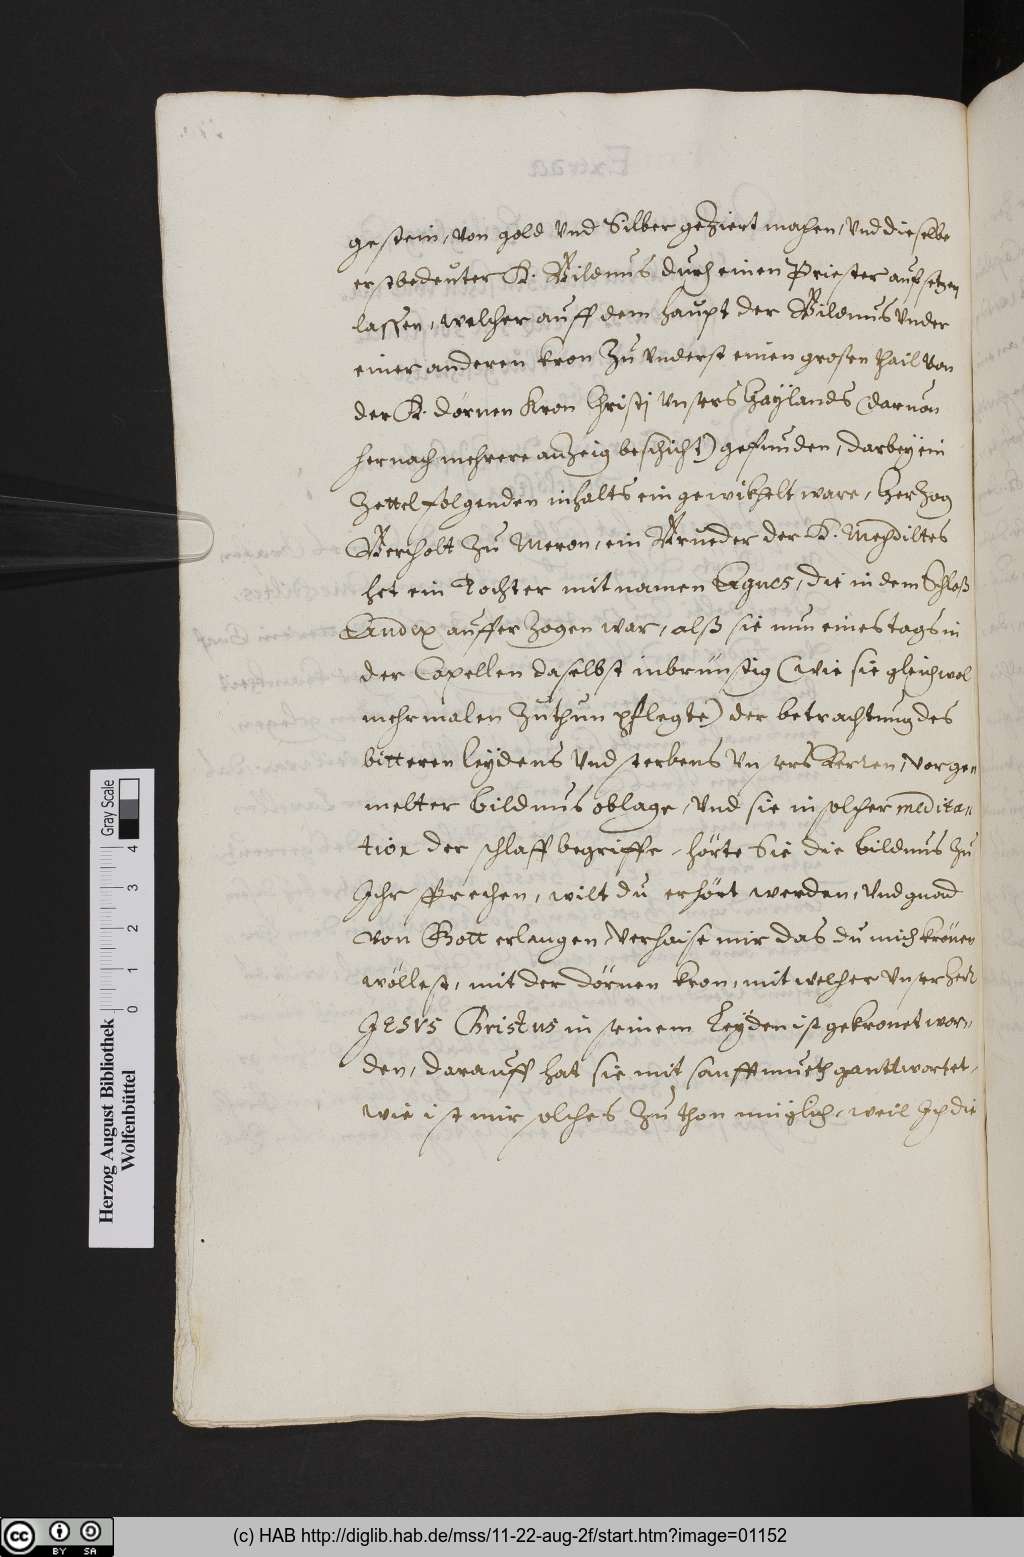 gestein, von gold vnd Silber geziert machen, vnd dieselbe
erstbedeuter H. Bildnus durch einen Priester aufsetzen
lassen, welcher auff dem haupt der Bildnus vnder
einer anderen kron zu vnderst einen grosen thail von
der H. dörnen Kron Christj vnsers Haÿlands (daruon
hernach mehrere anzeig beschicht) gefunden, darbeÿ ein
Zettel folgenden inhalts eingewikhelt ware, Herzog
Bertholt zu Meron, ein Brueder der H. Mechdiltes
het ein Tochter mit namen Agnes, die in dem Schloß
Andex aufferzogen war, alß sie nun eines tags in
der Capellen daselbst inbrünstig (wie sie gleichwol
mehrmalen zuthun pflegte) der betrachtung des
bitteren leÿdens vnd sterbens vnsers Herren, vorge
melter bildnus oblage, vnd sie in solcher medita,
tion der schlaff begriffe, hörte Sie die bildnus zu
Ihr sprechen, wilt du erhört werden, vnd gnad
von Gott erlangen, verhaise mir das du mich krönen
wöllest, mit der dörnen kron, mit welcher vnser herr
JESVS Christus in seinem Leÿden ist gekronet wor,
den, darauff hat sie mit sanfftmueth geanttwortet,
wie ist mir solches zu thon müglich, weil Ich die
Herzog August Bibliothek
Wolfenbüttel
0 1 2 3 4
Gray Scale
(c) HAB http://diglib.hab.de/mss/11-22-aug-2f/start.htm?image=01152
cc BY SA